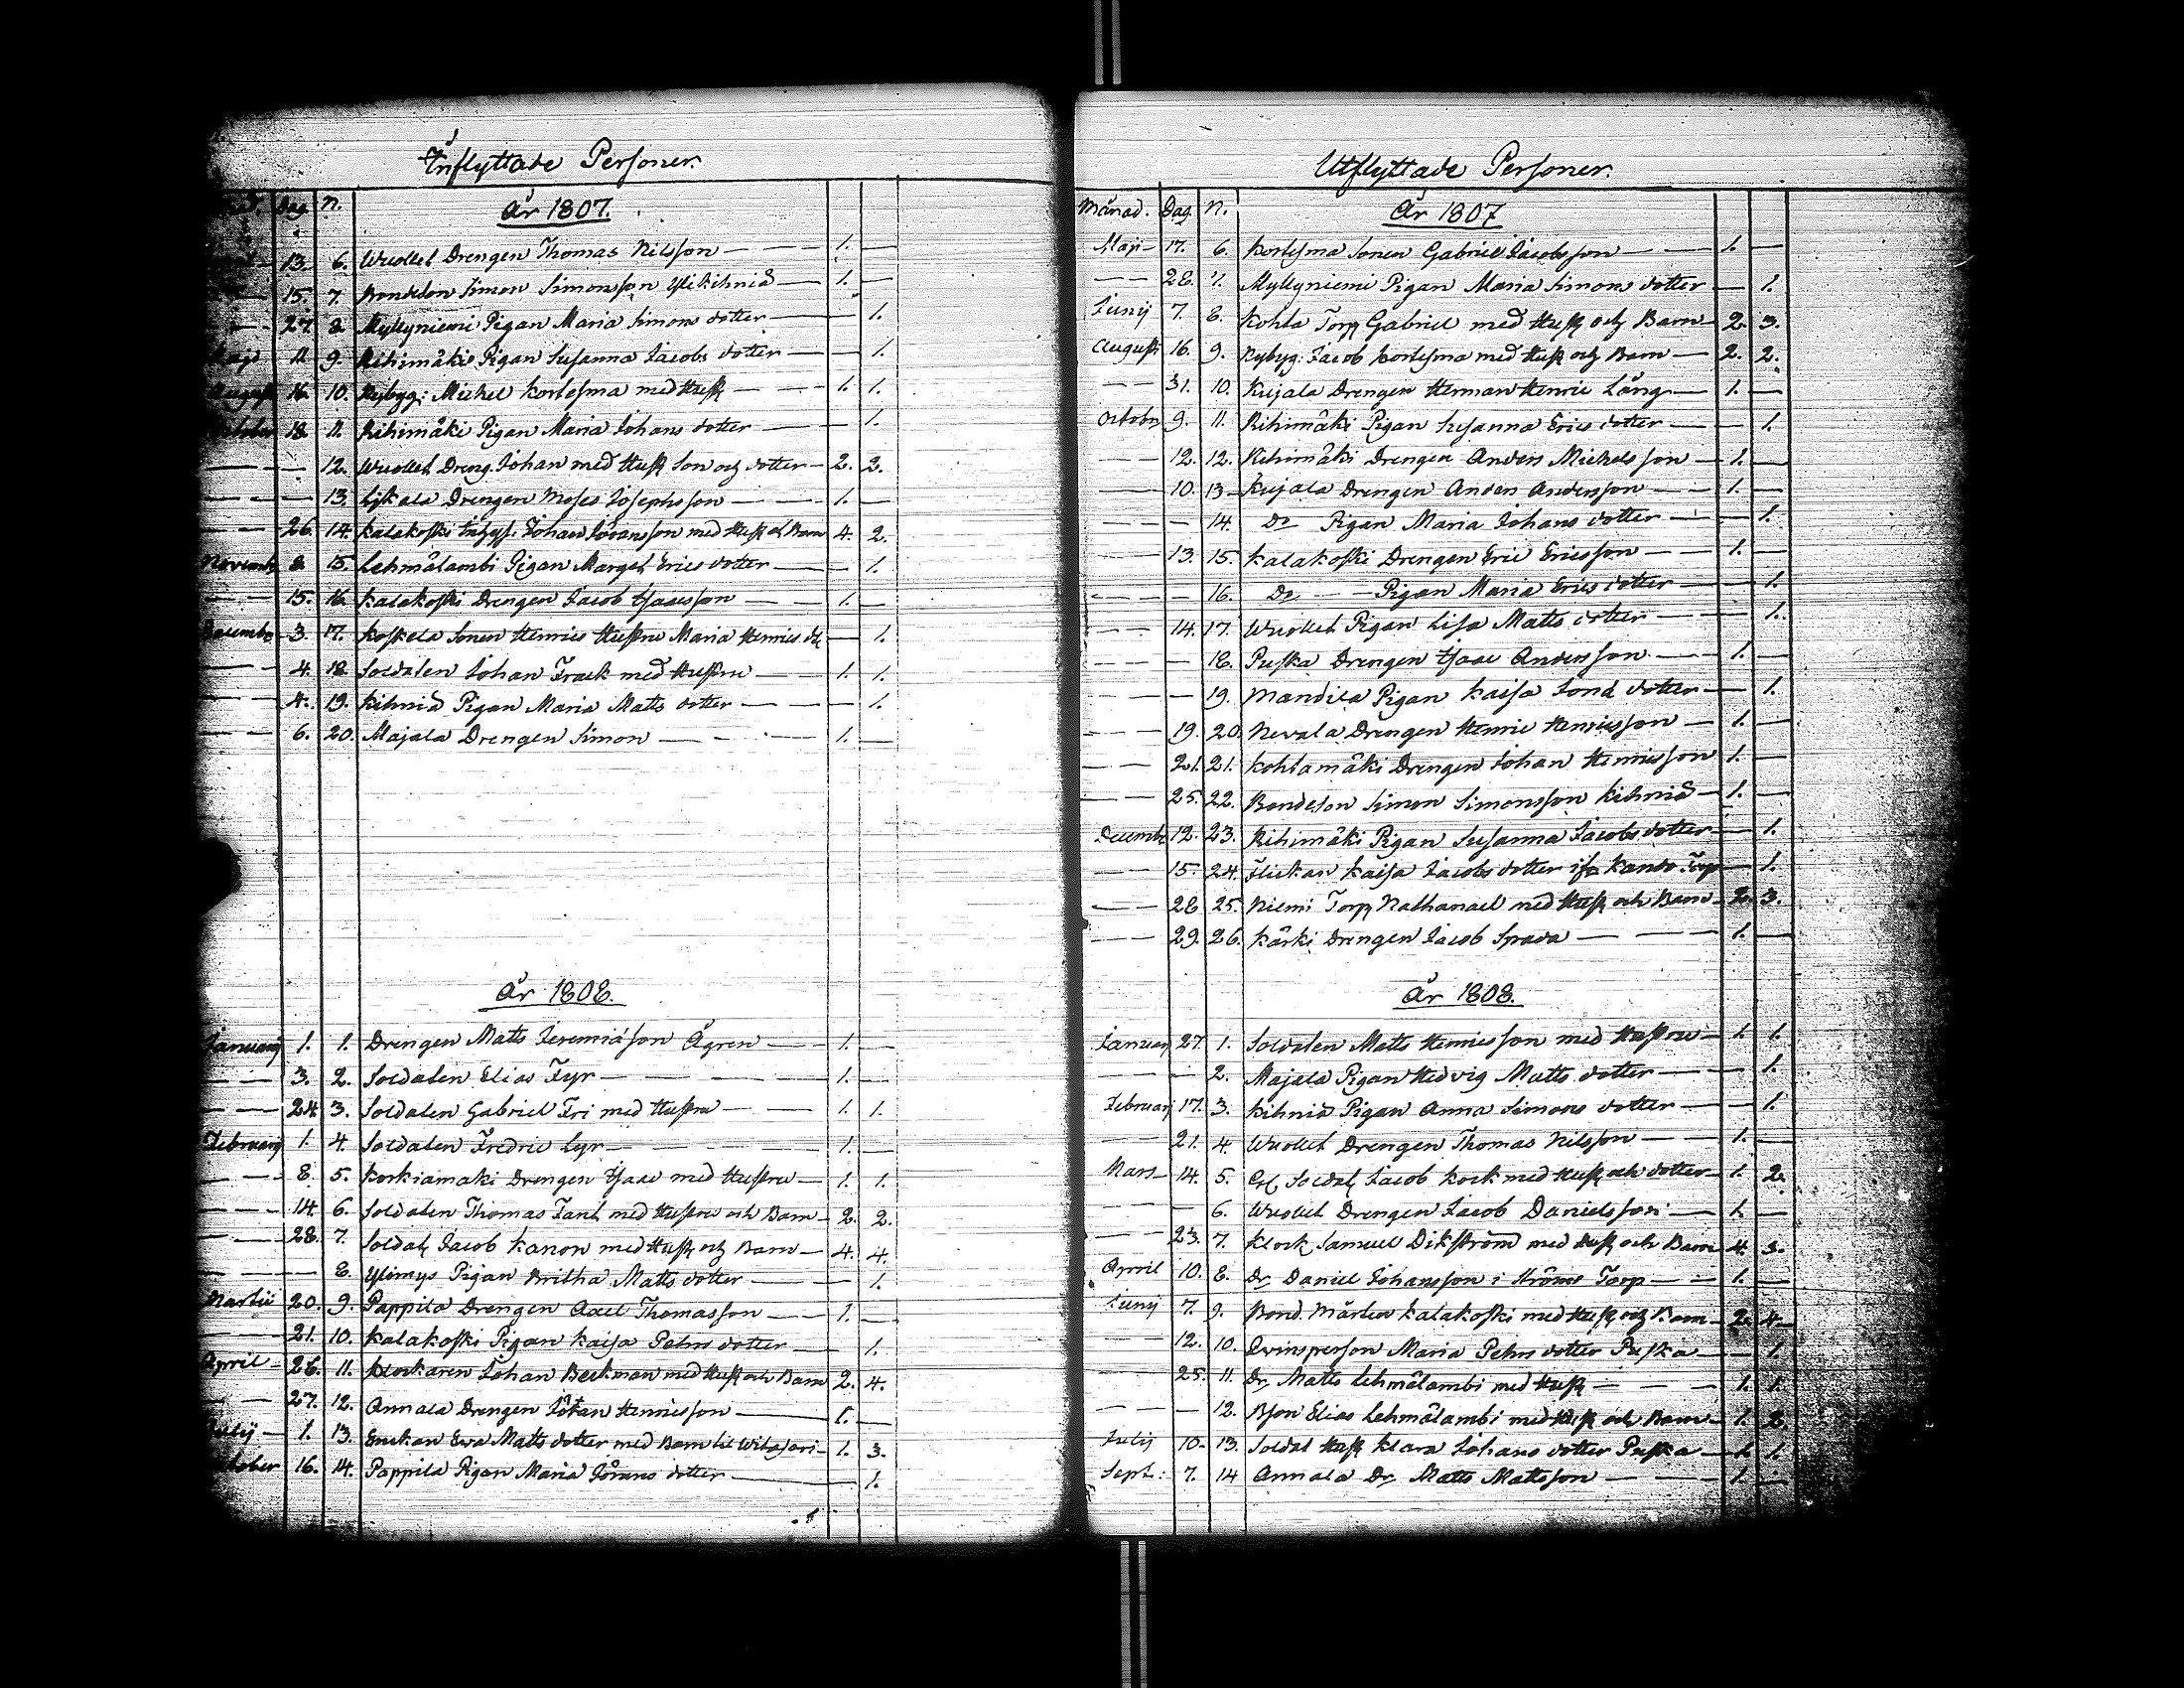 Inflyttade Personer.
Dag. N. År 1807.
13. 6. Wuollet Drengen Thomas Nilsson — 1. —
15. 7. Bondeson Simon Simonsson Ylikihniä — 1. —
27. 8. Myllyniemi Pigan Maria Simons dotter — — 1.
Maji 11. 9. Rihimäki Pigan Susanna Jacobs dotter — — 1.
August 16. 10. Nybygg: Michel Kortesma med Hust — 1. 1.
October 18. 11. Rihimäki Pigan Maria Johans dotter — — 1.
— — 12. Wuollet Dreng. Johan med Hust Son och dotter — 2. 2.
— — 13. Lykala Drengen Moses Josephsson — 1. —
— 26. 14. Kalakoski Johan Göransson med Hust och Barn 4. 2.
Novemb 8. 15. Lehmälambi Pigan Marget Erics dotter — — 1.
— 15. 16. Kalakoski Drengen Jacob Isacsson — 1. —
Decembr 3. 17. Koskela Sonen Henrics Hustru Maria Henrics dr — 1.
— 4. 18. Soldaten Johan Frack med Hustru — 1. 1.
— 4. 19. Kihniä Pigan Maria Matts dotter — — 1.
— 6. 20. Majala Drengen Simon — 1. —
År 1808.
Januarij 1. 1. Drengen Matts Jeremiäson Ågren — 1. —
— 3. 2. Soldaten Elias Fyr — 1. —
— 24. 3. Soldaten Gabriel Fri med Hustru — 1. 1.
Februarij 1. 4. Soldaten Fredric Cyr — 1. —
— 8. 5. Korkiamaki Drengen Isaac med Hustru — 1. 1.
— 14. 6. Soldaten Thomas Fant med Hustru och Barn — 2. 2.
— 28. 7. Soldat Jacob Kanon med Hust och Barn — 4. 4.
— — 8. Ylimys Pigan Britha Matts dotter — — 1.
Martii 20. 9. Pappila Drengen Axel Thomasson — 1. —
— 21. 10. Kalakoski Pigan Kaisa Pehrs dotter — — 1.
April 26. 11. Klockaren Johan Beckman med Hust och Barn 2. 4.
— 27. 12. Annala Drengen Johan Henricsson — 1. —
Julij — 1. 13. Enckan Ewa Matts dotter med Barn til Witasari — 1. 3.
October 16. 14. Pappila Pigan Maria Görans dotter — — 1.
Utflyttade Personer.
Månad. Dag. N. År 1807
Maji — 17. 6. Kortesma Sonen Gabriel Jacobsson — 1. —
— 28. 7. Myllyniemi Pigan Maria Simons dotter — — 1.
Junij 7. 8. Kohla Torp Gabriel med Hust och Barn — 2. 3.
August 16. 9. Nybyg: Jacob Kortesma med Hust och Barn — 2. 2.
— 31. 10. Kujala Drengen Herman Henric Lång — 1. —
Octobr 9. 11. Rihimäki Pigan Susanna Erics dotter — — 1.
— 12. 12. Rihimäki Drengen Anders Michelsson — 1. —
— 10. 13 — Kujala Drengen Anders Andersson — 1. —
— — 14. Do Pigan Maria Johans dotter — — 1.
— 13. 15. Kalakoski Drengen Eric Ericsson — 1. —
— — 16. Do — Pigan Maria Erics dotter — — 1.
— 14. 17. Wuollet Pigan Lisa Matts dotter — — 1.
— — 18. Puska Drengen Isaac Andersson — 1. —
— — 19. Mandila Pigan Kaisa dotter — — 1.
— 19. 20. Nevala Drengen Henric Henricsson — 1. —
— 21. 21. Kohtamäki Drengen Johan Henricsson 1. —
— 25. 22. Bondeson Simon Simonsson Kihniä — 1. —
Decembr 12. 23. Rihimäki Pigan Susanna Jacobs dotter — — 1.
— 15. 24. Flickan Kaisa Jacobs dotter Torp — 1.
— 28. 25. Niemi Torp Nathanael med Hust och Barn — 2. 3.
— 29. 26. Kärki Drengen Jacob Sprada — 1. —
År 1808.
Januarij 27. 1. Soldaten Matts Henricsson med Hustru — 1. 1.
— — 2. Majala Pigan Hedvig Matts dotter — — 1.
Februarij 17. 3. Kihniä Pigan Anna Simons dotter — — 1.
— 21. 4. Wuollet Drengen Thomas Nilsson — 1. —
Mars — 14. 5. Soldat Jacob Kock med Hust och dotter — 1. 2.
— — 6. Wuollet Drengen Jacob Danielsson — 1. —
— 23. 7. Klock Samuel Dikström med Hust och Barn 4. 3.
April 10. 8. Dr Daniel Johansson i Ströms Torp — 1. —
Junij 7. 9. Bond. Mårten Kalakoski med Hust och Barn — 2. 4.
— 12. 10. Qvinsperson Maria Pehrs dotter Puska — — 1.
— 25. 11. Dr Matts Lehmälambi med Hust — 1. 1.
— — 12. Bson Elias Lehmälambi med Hust och Barn — 1. 2.
Julij 10. 13. Soldat Hust Klara Johans dotter Puska — 1. 1.
Sept: 7. 14 Annala Dr Matts Mattsson — 1. —